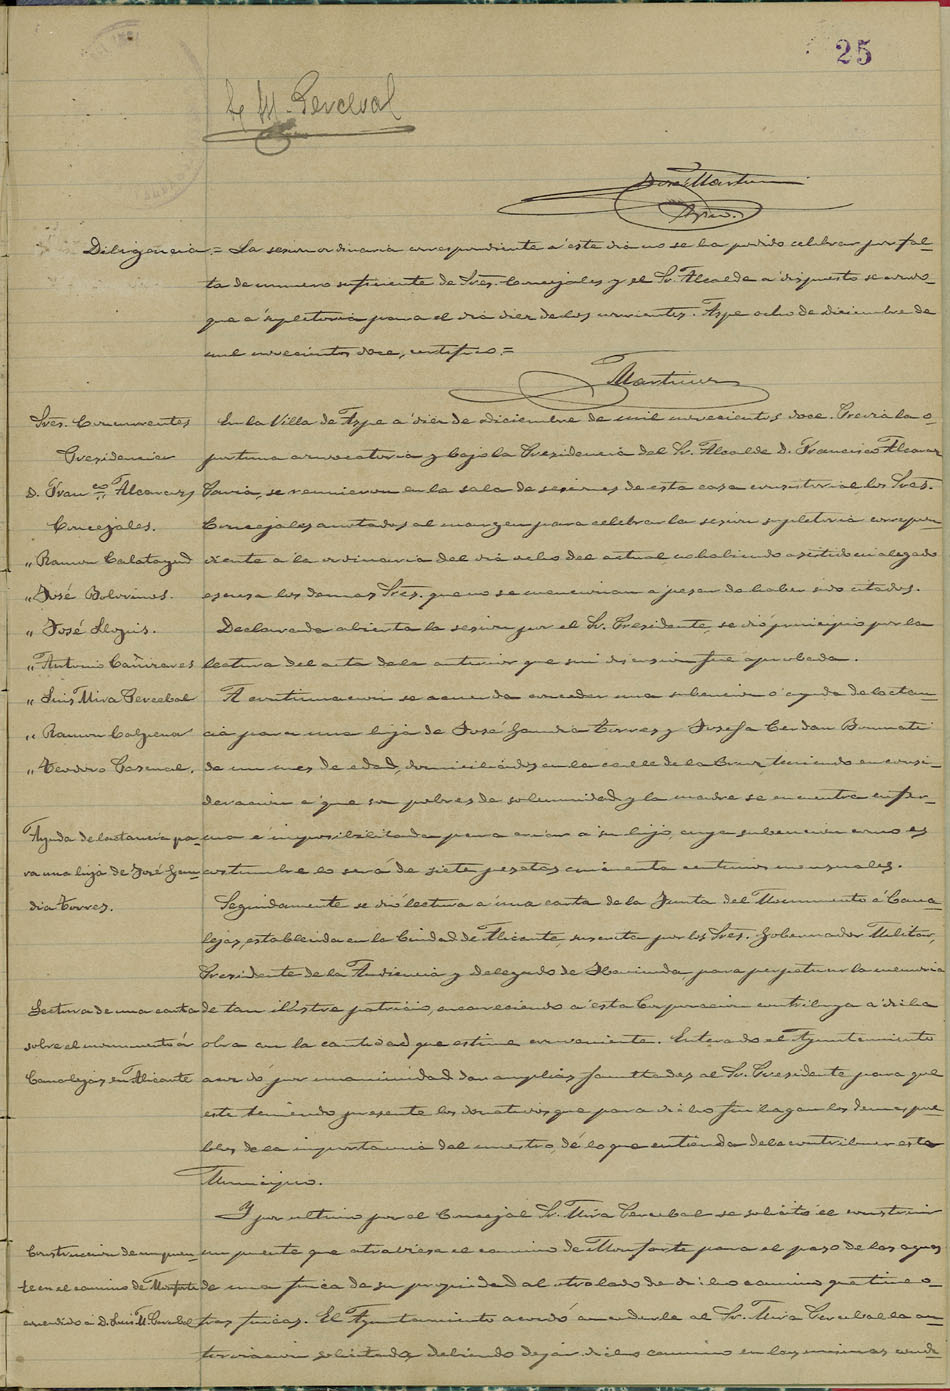 25
L. M. Perceval
José Martinez
Srio.
Diligencia = La sesion ordinaria correspondiente a este dia no se ha podido celebrar por fal-
ta de numero suficiente de Sres. Concejales y el Sr. Alcalde a dispuesto se convo-
que a supletoria para el dia diez de los corrientes. Aspe ocho de Diciembre de
mil novecientos doce, certifico. =
Martinez
Sres. Concurrentes
Presidencia
D. Franco Alcaraz
Concejales.
" Ramon Calatayud
" José Bolvinos.
" José Llopis.
" Antonio Cañizares
" Luis Mira Percebal
" Ramon Calpena
" Teodoro Pascual.
En la Villa de Aspe a diez de Diciembre de mil novecientos doce. Previa la o-
portuna convocatoria y bajo la Presidencia del Sr. Alcalde D. Francisco Alcaraz
se reunieron en la sala de sesiones de esta casa consistorial los Sres.
Concejales anotados al margen para celebrar la sesion supletoria correspon-
diente a la ordinaria del dia ocho del actual, no habiendo asistido ni alegado
escusa los demas Sres. que no se mencionan a pesar de haber sido citados.
Declarada abierta la sesion por el Sr. Presidente, se dió principio por la
lectura del acta de la anterior que sin discusion fue aprobada.
A continuacion se acuerda conceder una subencion o ayuda de lactan-
cia para una hija de José Gandia Torres y Josefa Cerdan Bonmati
de un mes de edad, domiciliados en la calle de la Cruz, teniendo en consi-
deracion a que son pobres de solemnidad y la madre se encuentra enfer-
ma e imposibilitada para criar a su hijo, cuya subencion como es
costumbre lo será de siete pesetas cincuenta centimos mensuales.
Ayuda de lactancia pa-
ra una hija de José Gan-
dia Torres.
Seguidamente se dió lectura a una carta de la Junta del Monumento á Cana-
lejas, establecida en la Ciudad de Alicante, suscrita por los Sres. Gobernador Militar,
Presidente de la Audiencia y Delegado de Hacienda para perpetuar la memoria
de tan ilustre patricio, encareciendo a esta Corporacion contribuya a dicha
obra con la cantidad que estime conveniente. Enterado el Ayuntamiento
acordó por unanimidad dar amplias facultades al Sr. Presidente para que
este teniendo presente los donativos que para dicho fin hagan los demas pue-
blos de la importancia del nuestro, dé lo que entienda debe contribuir este
Municipio.
Lectura de una carta
sobre el monumento á
Canalejas en Alicante
Y por ultimo por el Concejal Sr. Mira Percebal se solicitó el construir
un puente que atraviese el camino de Monforte para el paso de las aguas
de una finca de su propiedad al otro lado de dicho camino que tiene o-
tras fincas. El Ayuntamiento acordó concederle al Sr. Mira Percebal la au-
torizacion solicitada, debiendo dejar dicho camino en las mismas condi-
Construccion de un puen-
te en el camino de Monforte
concedido a D. Luis M. Percebal